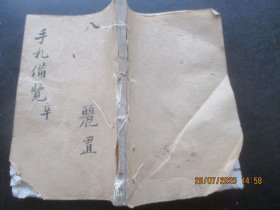 八
手札備覽
麗置
28/07/2023 14:58